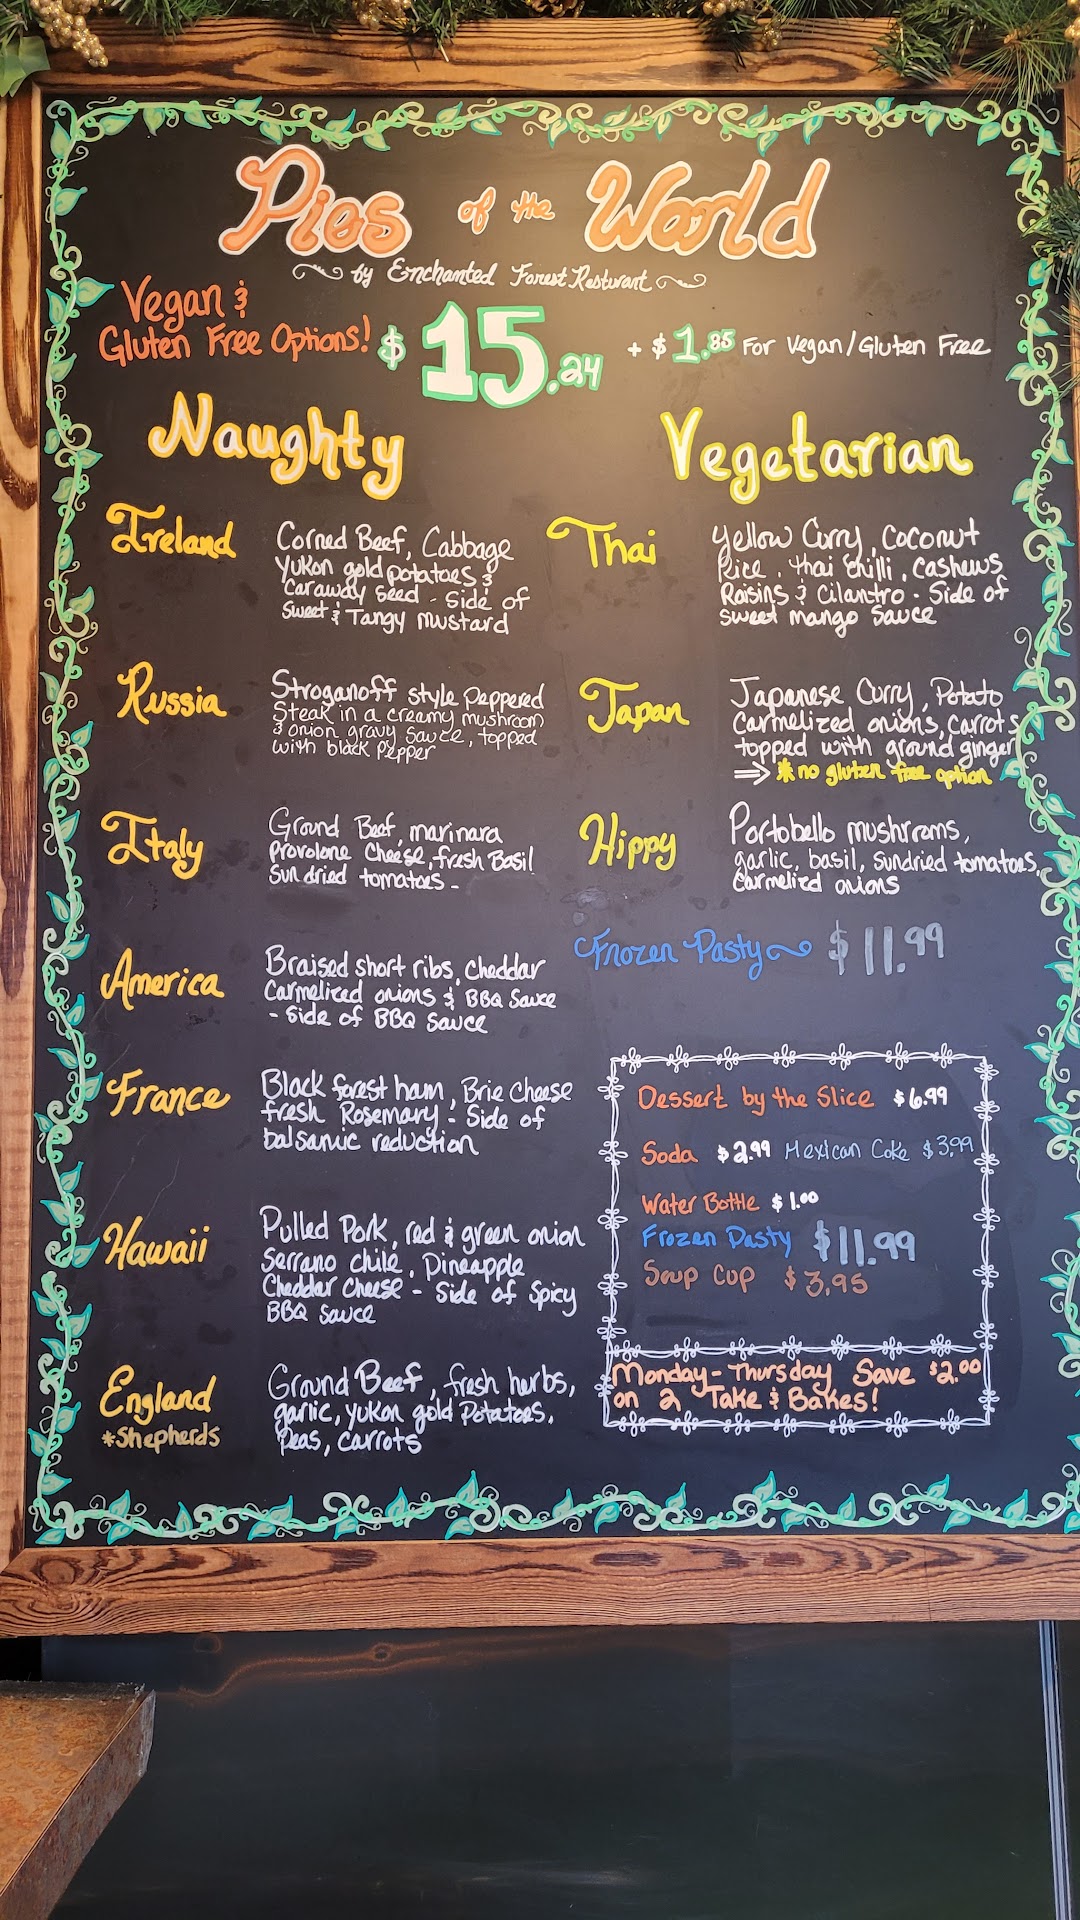 Pies of the World
by Enchanted Forest Resturant
Vegan &
Gluten Free Options!
$15.24
+ $1.85 For Vegan/Gluten Free
Naughty
Ireland
Corned Beef, Cabbage
Yukon gold potatoes &
Carawdy seed - Side of
Sweet & Tangy mustard
Russia
Stroganoff style Peppered
Steak in a creamy mushroom
& onion gravy sauce, topped
with black pepper
Italy
Ground Beef, marinara
Provolone Cheese, fresh Basil
Sun dried tomatoes -
America
Braised short ribs, cheddar
Carmelized onions & BBQ Sauce
- Side of BBQ Sauce
France
Black forest ham, Brie Cheese
fresh Rosemary - Side of
balsamic reduction
Hawaii
Pulled Pork, red & green onion
Serrano chile, Pineapple
Cheddar Cheese - Side of Spicy
BBQ Sauce
England
*Shepherds
Ground Beef, fresh herbs,
garlic, yukon gold Potatoes,
Peas, carrots
Vegetarian
Thai
Yellow Curry, Coconut
Rice, thai chilli, cashews
Raisins & Cilantro - Side of
sweet mango sauce
Japan
Japanese Curry, Potato
Carmelized onions, Carrots
topped with ground ginger
⇒ * no gluten free option
Hippy
Portobello mushrooms,
garlic, basil, sundried tomatoes,
Carmelized onions
Frozen Pasty $11.99
Dessert by the Slice $6.99
Soda $2.99 Mexican Coke $3.99
Water Bottle $1.00
Frozen Pasty $11.99
Soup Cup $3.95
Monday-Thursday Save $2.00
on 2 Take & Bakes!